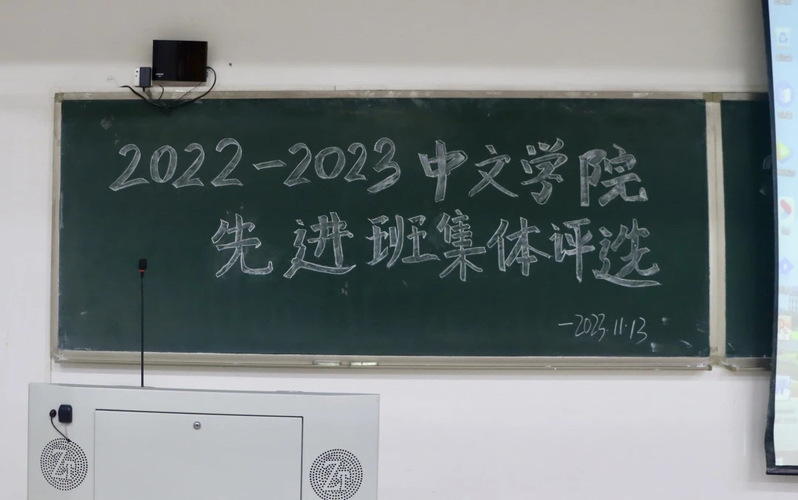 2022-2023中文学院
先进班集体评选
-2023.11.13
ZT
ZT